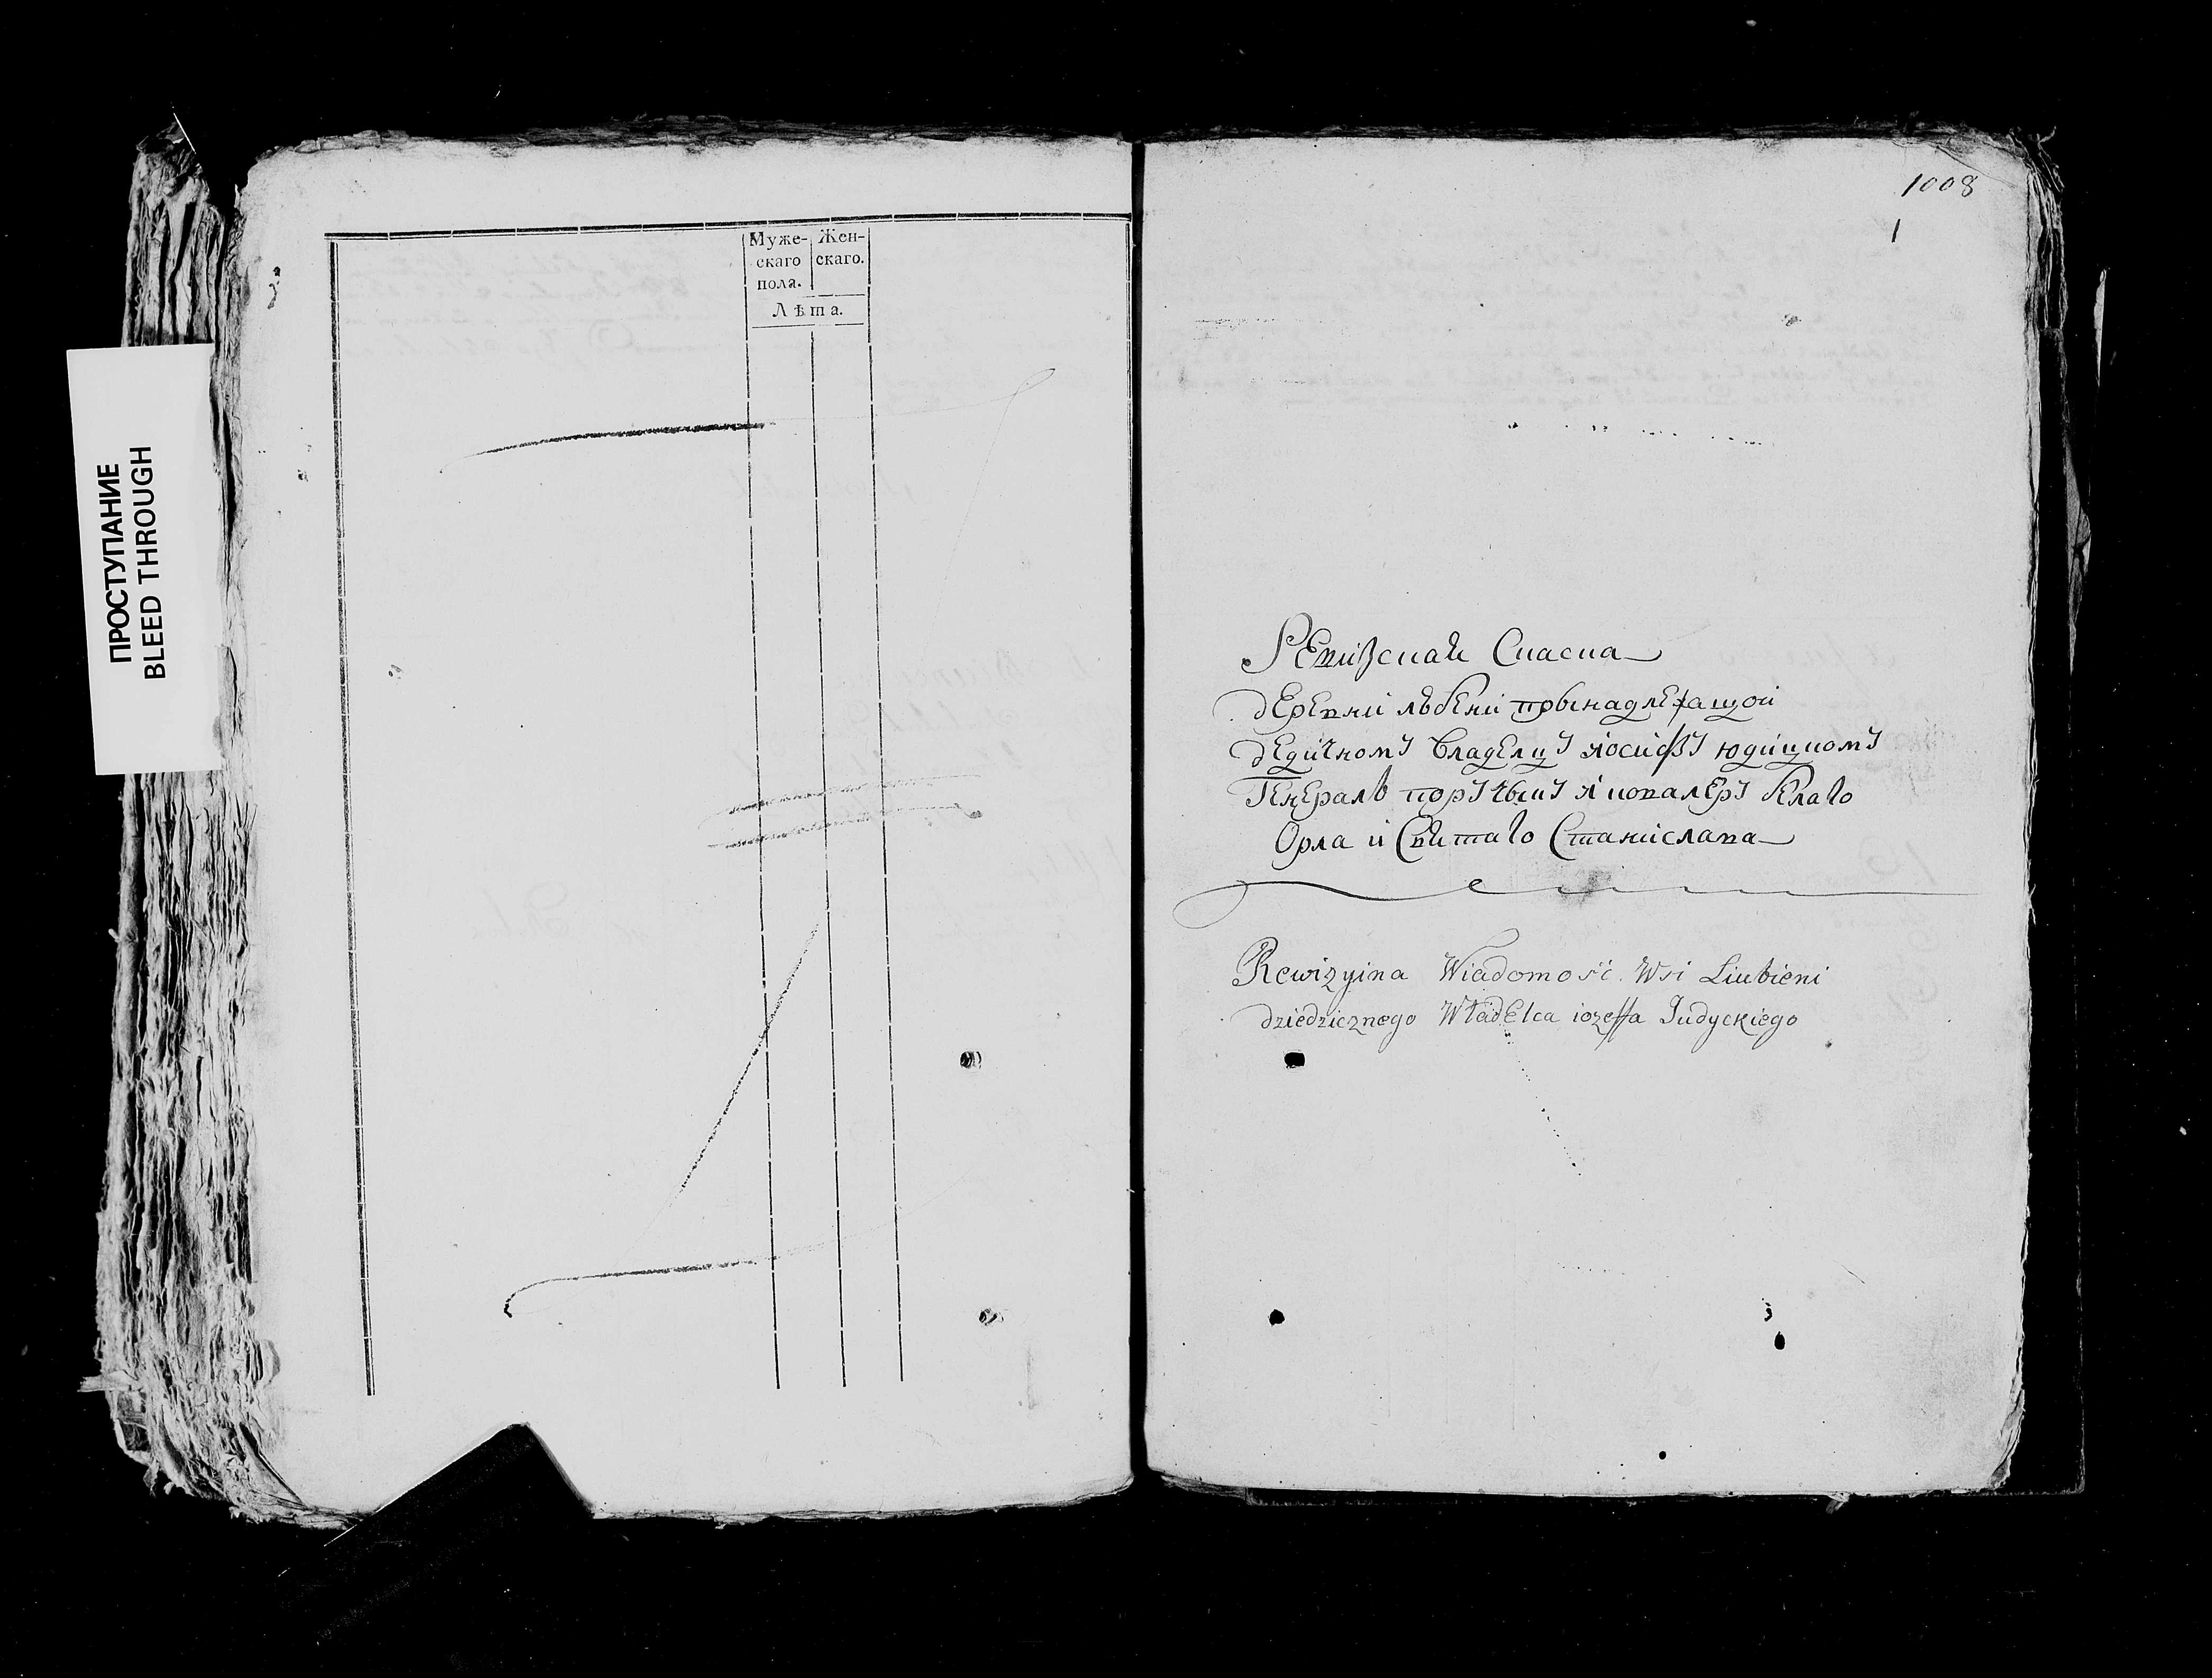 ПРОСТУПАНИЕ
BLEED THROUGH
Муже- Жен-
скаго скаго.
пола.
Лѣта.
1008
1
Ревизская Сказка
деревни лѣбени прынадлежащой
дедичному владелцу иосифу юдицкому
Генералъ поручыку и кавалеру белаго
Орла и Святаго Станислава
Rewizyina Wiadomość. Wsi Liubieni
dziedzicznego Władelca iozeffa Judyckiego